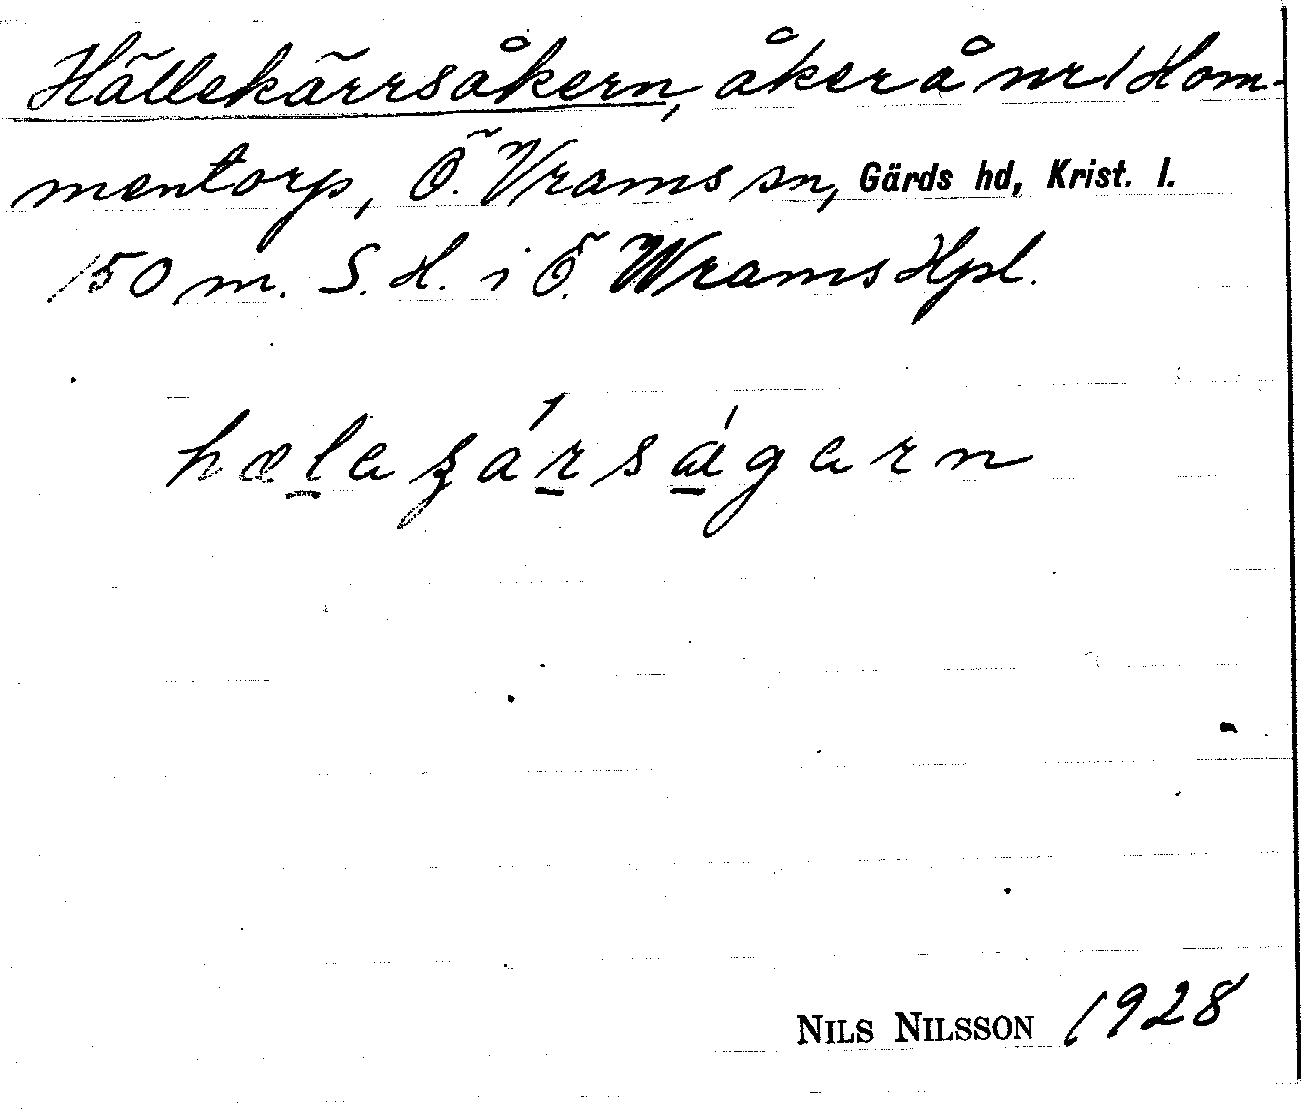 Hällekärrsåkern, åker å nr 1 Hom-
mentorp, Ö. Vrams sn, Gärds hd, Krist. l.
150 m. S. H. i Ö. Wrams Hpl.
hælaʒárságarn
NILS NILSSON 1928